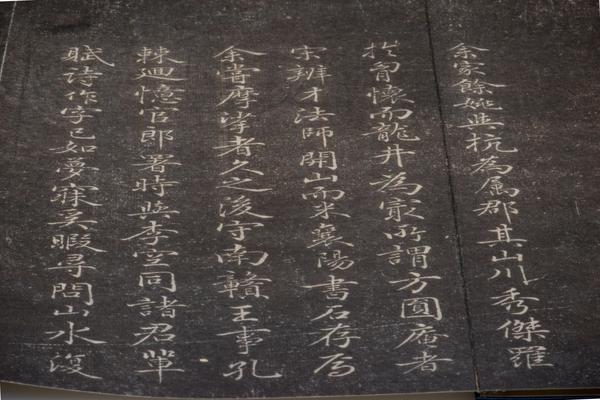 余家餘姚與杭為属郡其山川秀傑羅
扵胷懷而龍井為冣所謂方圓庵者
宋辨才法師開山而米襄陽書石存焉
余嘗摩挲者久之後守南贛王事孔
棘迴憶官郎署時與李空同諸君輩
賦詩作字已如夢寐奚暇尋問山水復